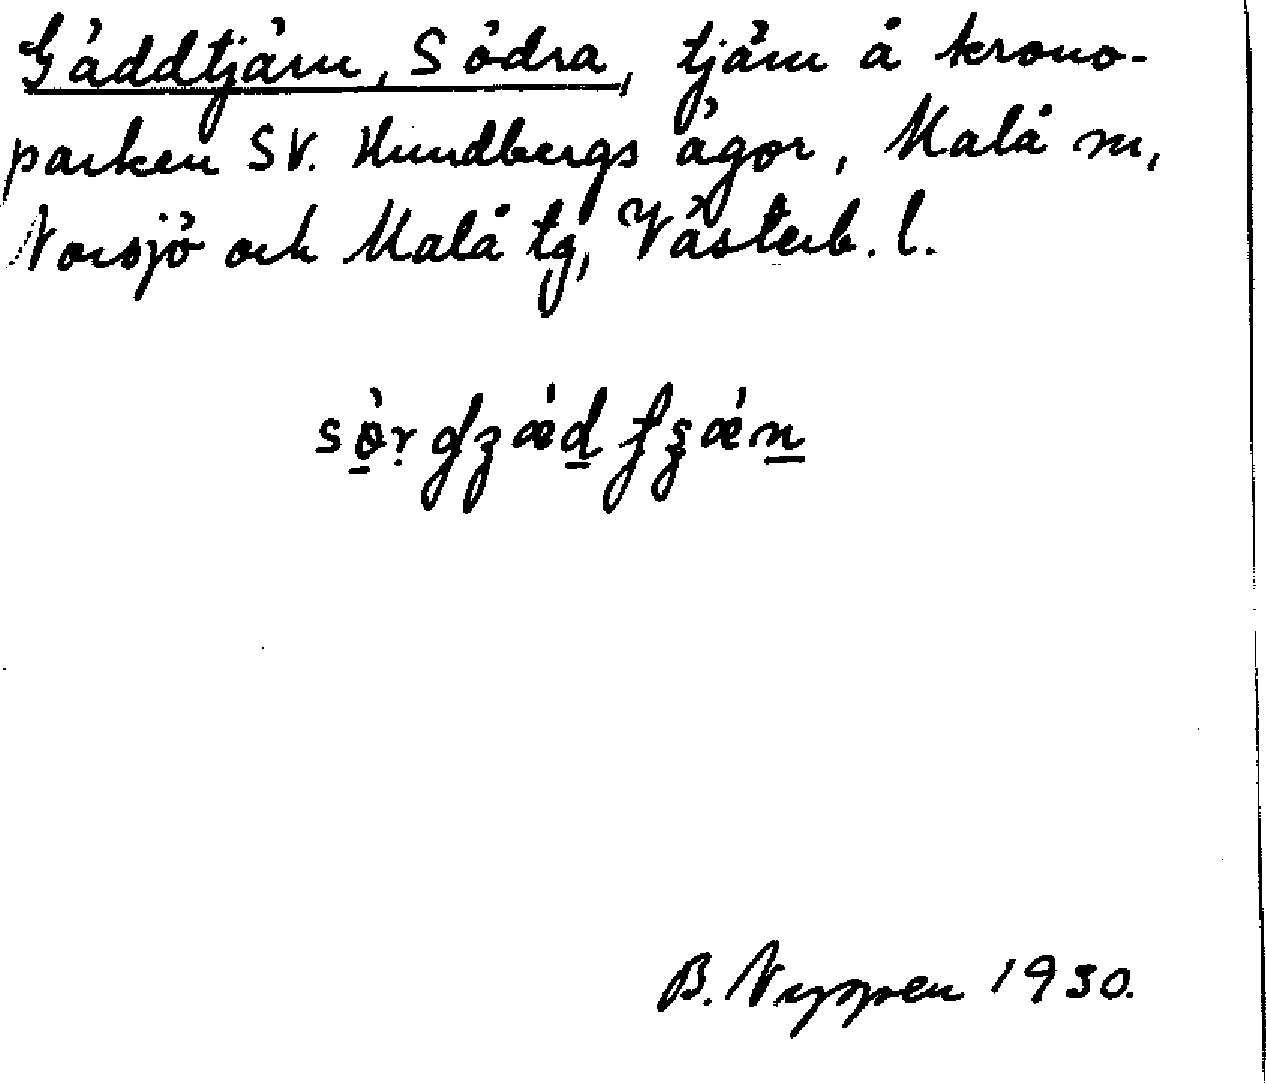 Gäddtjärn, Södra, tjärn å krono-
parken SV. Hundbergs ägor, Malå sn,
Norsjö och Malå tg, Västerb. l.
B. Nygren 1930.